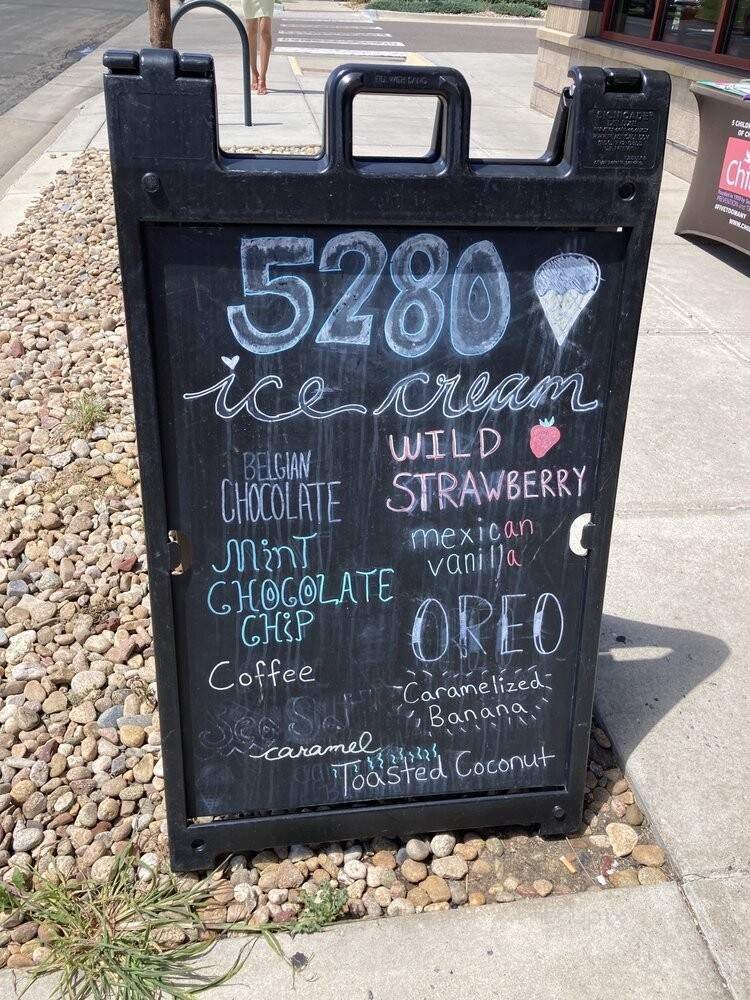 5280
ice cream
BELGIAN
CHOCOLATE
MiNT
CHOCOLATE
CHiP
Coffee
Sea Salt
caramel
WILD
STRAWBERRY
mexican
vanilla
OREO
Caramelized
Banana
Toasted Coconut
5 CHILD
OF C
Chi
#FIVETOOMANY